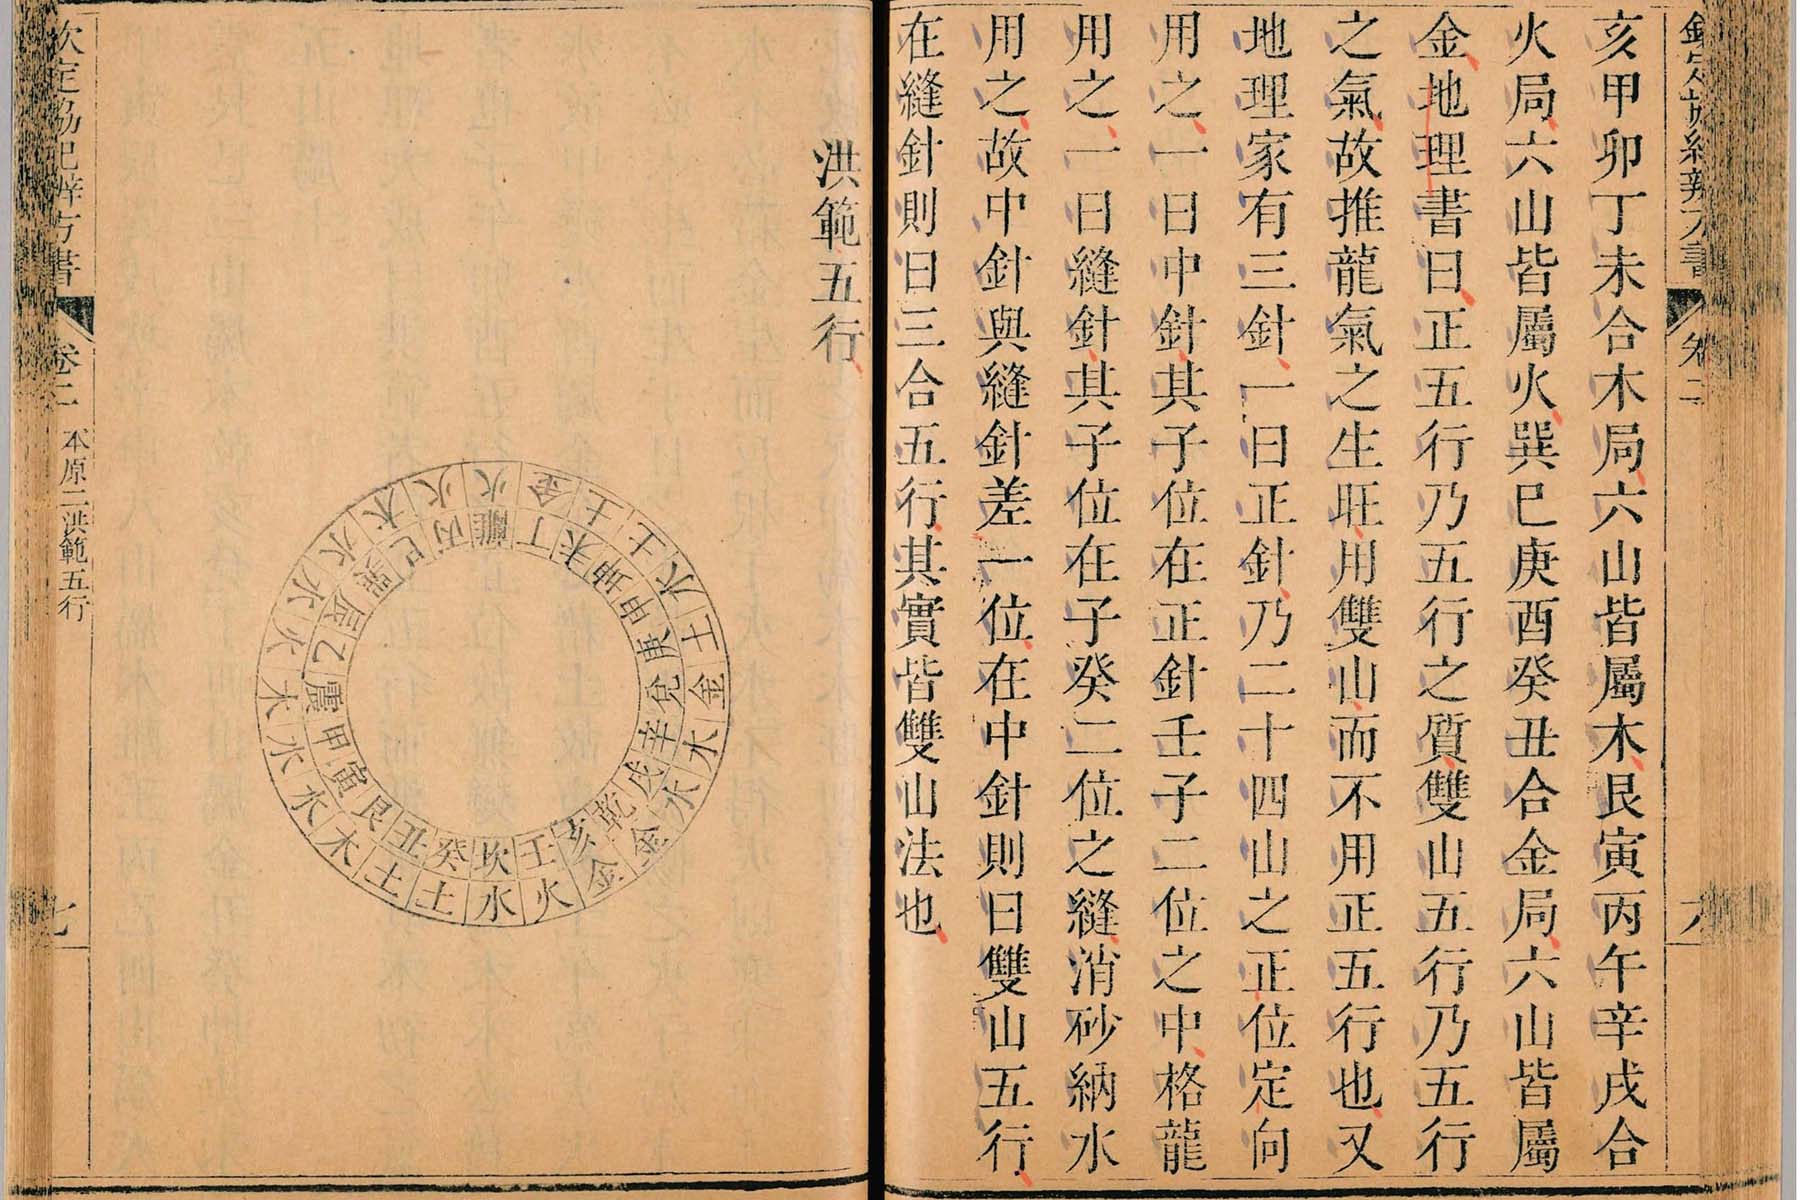 欽定協紀辨方書 卷二 六
亥甲卯丁未合木局六山皆屬木艮寅丙午辛戌合
火局六山皆屬火巽巳庚酉癸丑合金局六山皆屬
金地理書曰正五行乃五行之質雙山五行乃五行
之氣故推龍氣之生旺用雙山而不用正五行也又
地理家有三針一曰正針乃二十四山之正位定向
用之一曰中針其子位在正針壬子二位之中格龍
用之一曰縫針其子位在子癸二位之縫消砂納水
用之故中針與縫針差一位在中針則曰雙山五行
在縫針則曰三合五行其實皆雙山法也
洪範五行
火金土土水土金水水金金火水土土木水水木火水水木火
離丁未坤申庚兌辛戌乾亥壬坎癸丑艮寅甲震乙辰巽巳丙
欽定協紀辨方書 卷二 本原二洪範五行 七